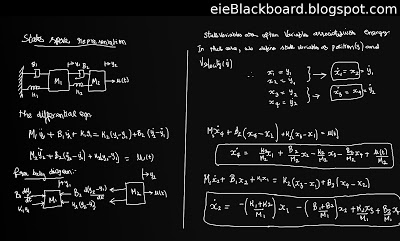 eieBlackboard.blogspot.com
States space Representation
B1 y1 B2 y2
M1 M2 u(t)
K1 K2
the differential eqs
M1ÿ1 + B1ẏ1 + K1y1 = K2(y2-y1) + B2(ẏ2-ẏ1)
M2ÿ2 + B2(ẏ2-ẏ1) + K2(y2-y1) = u(t)
free body diagram:-
M1 M2
State Variables are often Variables associated with energy
In this case, we define state variables as position(y) and
Velocity(ẏ)
∴ x1 = y1
x2 = ẏ1
ẋ1 = x2 = ẏ1
x3 = y2
x4 = ẏ2
ẋ3 = x4 = ẏ2
M2ẋ4 + B2(x4-x2) + K2(x3-x1) = u(t)
ẋ4 = K2/M2 x1 + B2/M2 x2 - K2/M2 x3 - B2/M2 x4 + u(t)/M2
M1ẋ2 + B1x2 + K1x1 = K2(x3-x1) + B2(x4-x2)
ẋ2 = -(K1+K2/M1) x1 - (B1+B2/M1) x2 + K2/M1 x3 + B2/M1 x4